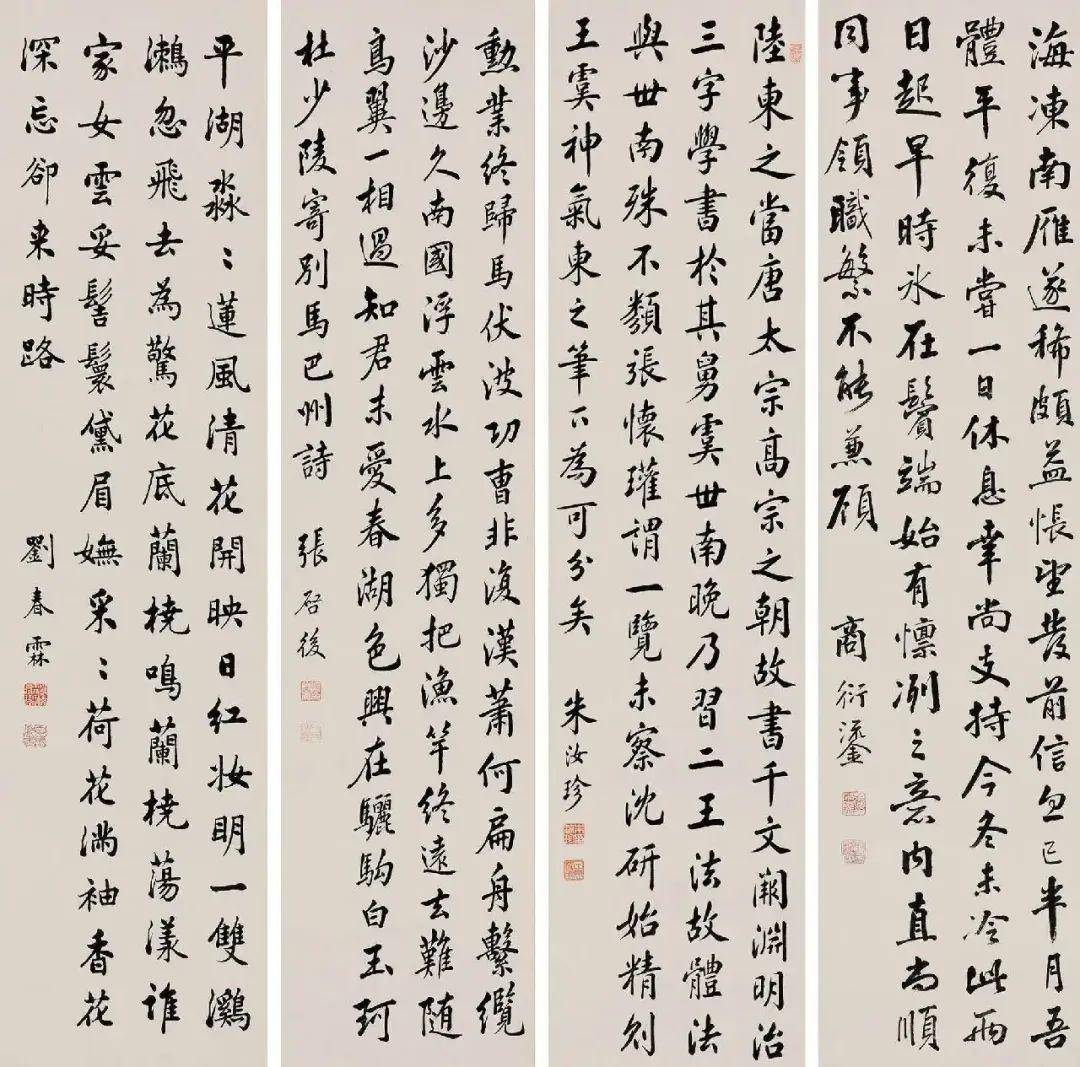 海凍南雁遂稀頗益悵望發前信忽已半月吾
體平復未嘗一日休息幸尚支持今冬未冷此兩
日起早時冰在鬚端始有懍冽之意內直尚順
同事領職繁不能兼顧
商衍鎏
陸東之當唐太宗高宗之朝故書千文闕淵明治
三字學書於其舅虞世南晚乃習二王法故體法
與世南殊不類張懷瓘謂一覽未察沈研始精則
王虞神氣東之筆下為可分矣
朱汝珍
勳業終歸馬伏波功曹非復漢蕭何扁舟繫纜
沙邊久南國浮雲水上多獨把漁竿終遠去難隨
鳥翼一相過知君未愛春湖色興在驪駒白玉珂
杜少陵寄別馬巴州詩
張啓後
平湖淼〻蓮風清花開映日紅妝明一雙鸂
鶒忽飛去為驚花底蘭橈鳴蘭橈蕩漾誰
家女雲妥髻鬟黛眉嫵采〻荷花滿袖香花
深忘卻来時路
劉春霖